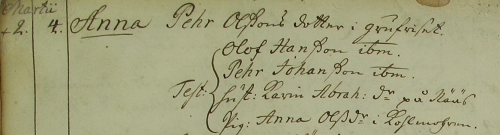 Martii
+2. 4. Anna Pehr Olßons dotter i grufriset.
Olof Hanßon ibm.
Pehr Johanßon ibm.
Test: hust: Karin Abrah: dr på Nääs
Pig: Anna Olßdr i